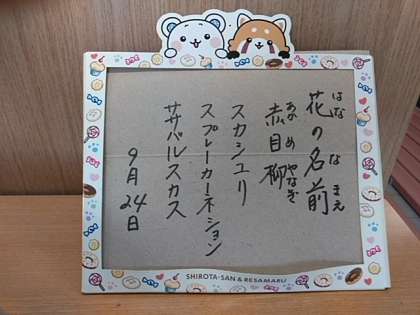 花の名前
はな なまえ
赤目柳
あかめ やなぎ
スカシユリ
スプレーカーネション
ササバルスカス
9月24日
SHIROTA-SAN & RESAMARU